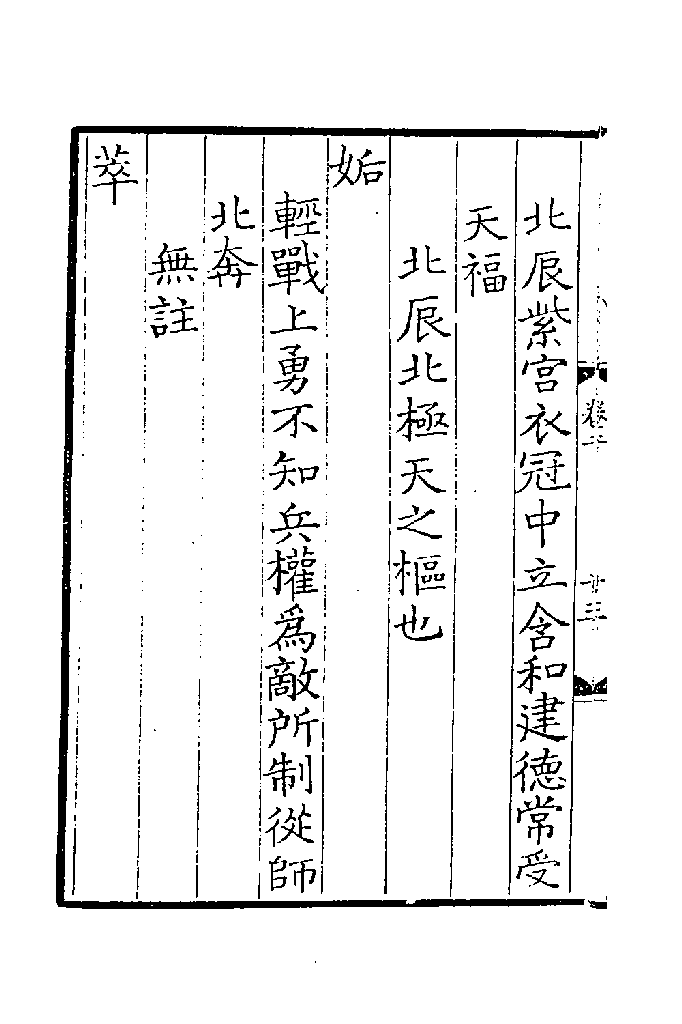 北辰紫宫衣冠中立含和建德常受
天福
北辰北極天之樞也
姤
輕戰上勇不知兵權為敵所制從師
北奔
無註
萃